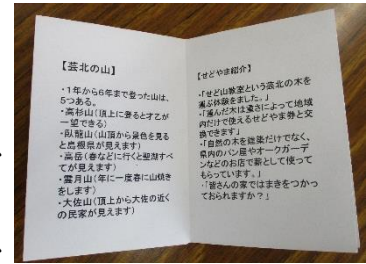 【芸北の山】
・1年から6年まで登った山は、
5つある。
・高杉山(頂上に登ると才乙が
一望できる)
・臥龍山(山頂から景色を見る
と島根県が見えます)
・高岳(春などに行くと聖湖すべ
てが見えます)
・雲月山(年に一度春に山焼き
をします)
・大佐山(頂上から大佐の近く
の民家が見えます)
【せどやま紹介】
・「せど山教室という芸北の木を
運ぶ体験をました。」
・「運んだ木は重さによって地域
内だけで使えるせどやま券と交
換できます」
・「自然の木を総菜だけでなく、
県内のパン屋やオークガーデ
ンなどのお店で薪として使って
もらっています。」
・「皆さんの家ではまきをつかっ
ておられますか？」